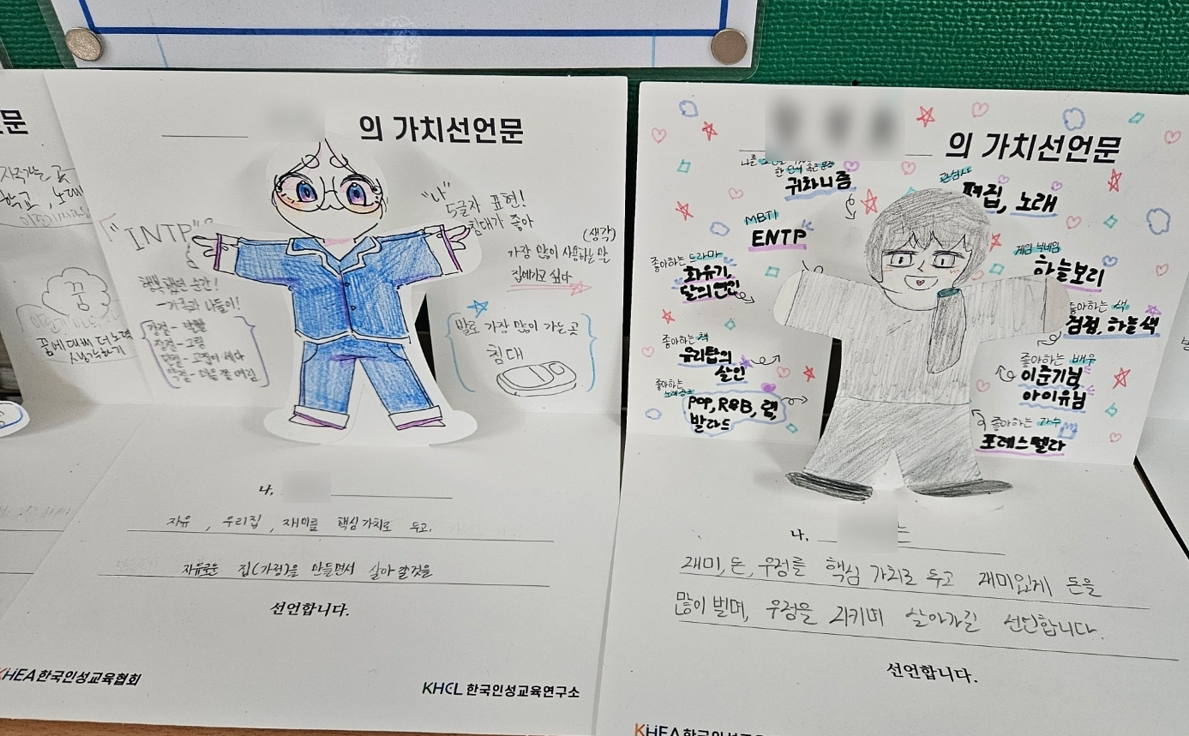 문
꿈
꿈에 대해 더 노력
의 가치선언문
"INTP"
"나"
5글자 표현!
침대가 좋아
(생각)
가장 많이 사용하는 말
집에가고 싶다
행복했던 순간!
-가족과 나들이!
강점-
단점-고집이 세다
발로 가장 많이 가는 곳
침대
나,
자유, 우리집, 재미를 핵심가치로 두고,
자유로운 집(가정)을 만들면서 살아갈것을
선언합니다.
KHEA한국인성교육협회
KHCL 한국인성교육연구소
의 가치선언문
귀차니즘
관심사
편집, 노래
MBTI
ENTP
좋아하는 드라마
화유기,
달의연인
하늘보리
좋아하는 색
검정, 하늘색
좋아하는 책
유리탑의
살인
좋아하는 배우
이준기님,
아이유님
좋아하는
pop, R&B, 랩,
발라드
좋아하는 가수
포레스텔라
나,
는
재미, 돈, 우정를 핵심 가치로 두고 재미있게 돈을
많이 벌며, 우정을 지키며 살아가길 선언합니다.
선언합니다.
KHEA한국인성교육